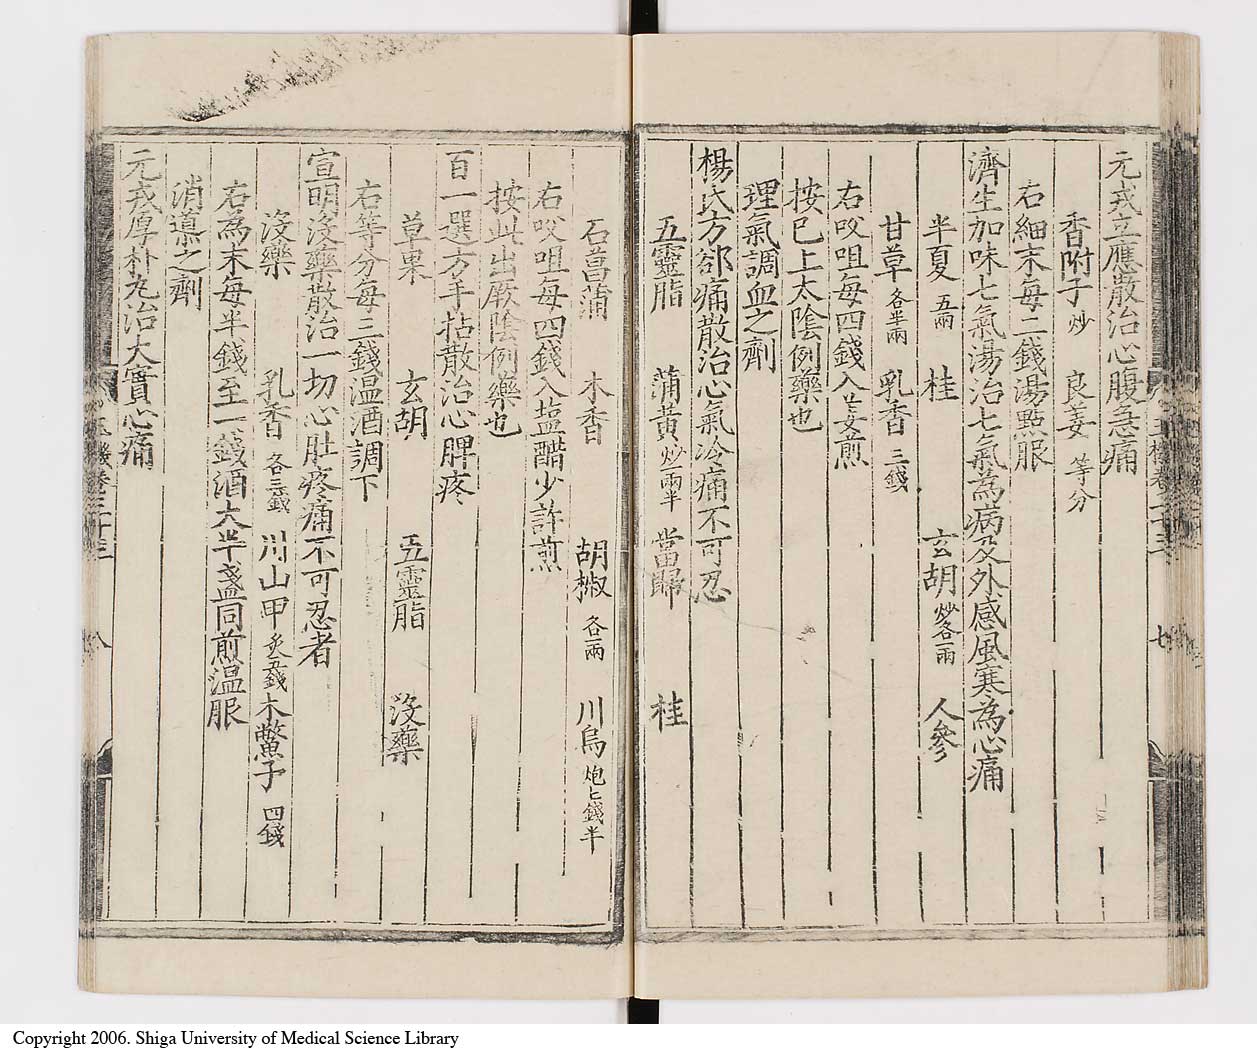 元戎立應散治心腹急痛
香附子炒 良姜 等分
右細末每二錢湯點服
濟生加味七氣湯治七氣為病及外感風寒為心痛
半夏五兩 桂 玄胡炒各一兩 人參
甘草各半兩 乳香三錢
右㕮咀每四錢入姜煎
按已上太陰例藥也
理氣調血之劑
楊氏方卻痛散治心氣冷痛不可忍
五靈脂 蒲黃炒一兩半 當歸 桂
石菖蒲 木香 胡椒各一兩 川烏炮七錢半
右㕮咀每四錢入塩醋少許煎
按此出厥陰例藥也
百一選方手拈散治心脾疼
草果 玄胡 五靈脂 沒藥
右等分每三錢温酒調下
宣明沒藥散治一切心肚疼痛不可忍者
沒藥 乳香各三錢 川山甲炙五錢 木鱉子四錢
右為末每半錢至一錢酒大半盞同煎温服
消導之劑
元戎厚朴丸治大實心痛
七
八
Copyright 2006. Shiga University of Medical Science Library